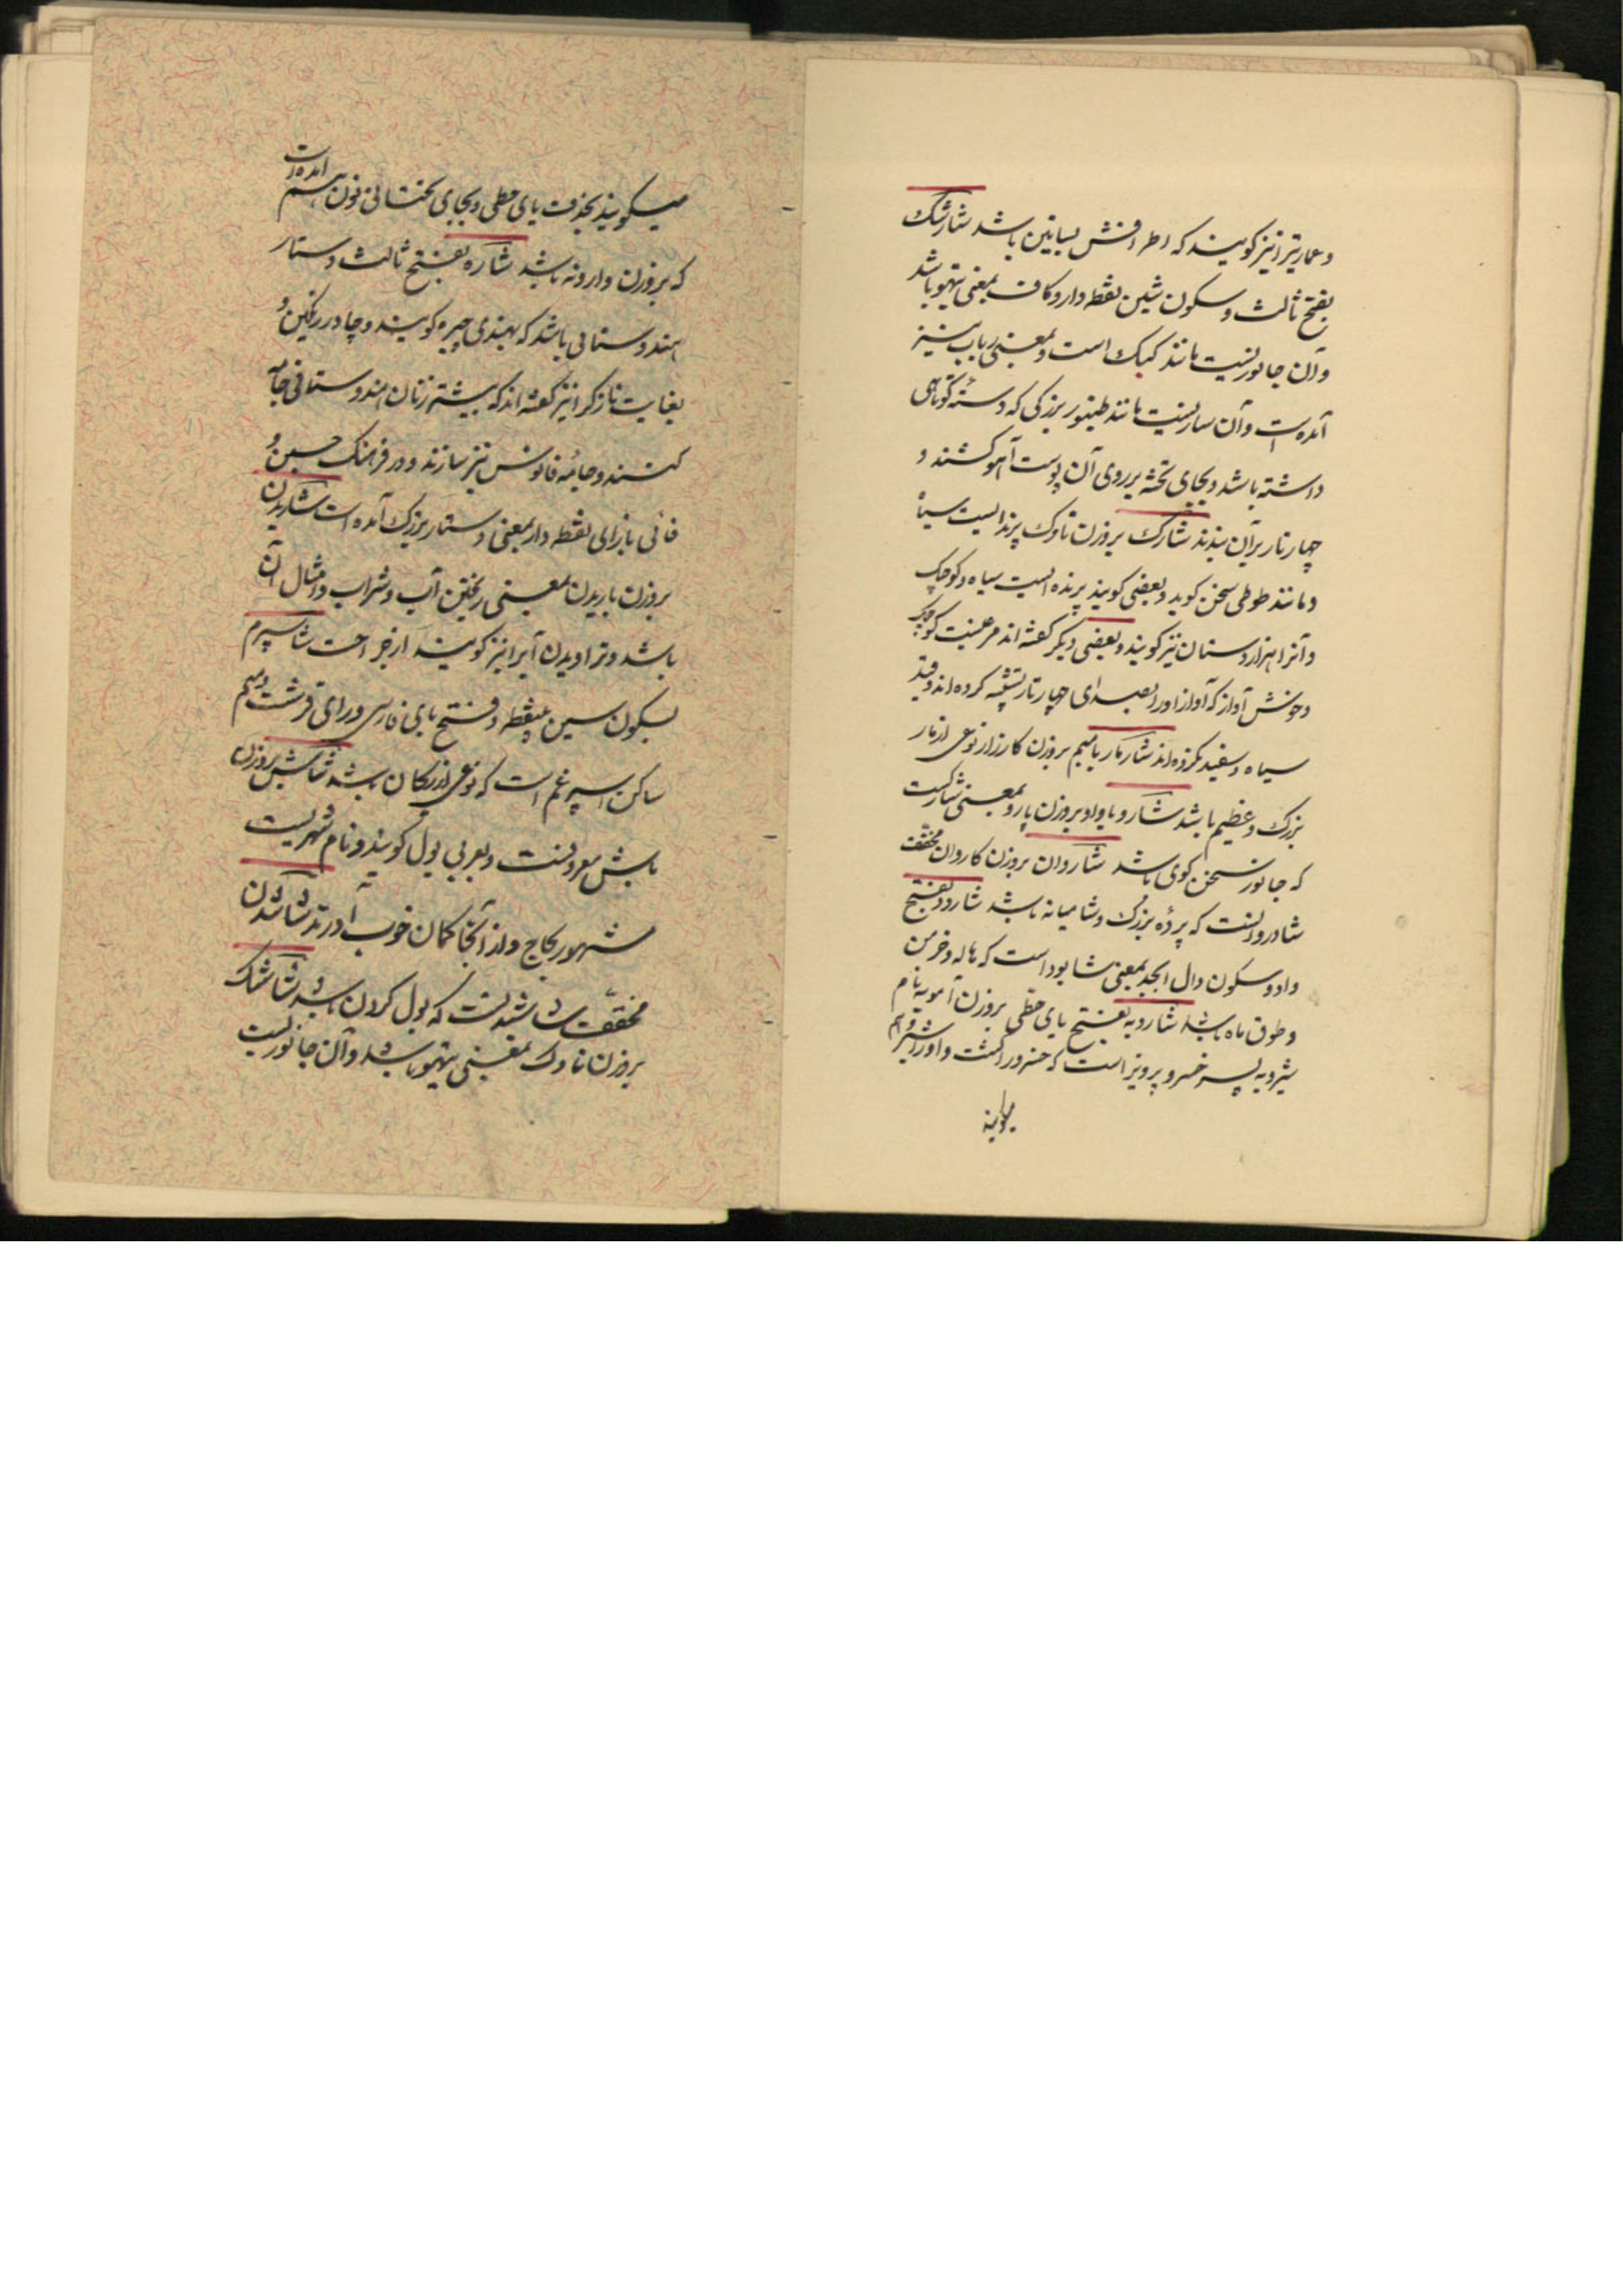 و عمارتیرا نیز کویند که اطرافش بساتین باشد شارشک
بفتح ثالث و سکون شین نقطه دار و کاف بمعنی تیهو باشد
و آن جانوریست مانند کبک است و بمعنی رباب نیز
آمده است و آن سازیست مانند طنبور بزرکی که دسته کوتاهی
داشته باشد و بجای تخته بر روی آن پوست آهو کشند و
چهار تار بر آن بندند شارک بروزن ناوک پرنداایست سیاه
و مانند طوطی سخن کوید و بعضی کویند پرنده ایست سیاه و کوچک
و آنرا هزار دستان نیز کویند و بعضی دیکر کفته اند مرغیست کوچک
و خوش آواز که آواز او را بصدای چهار تار تشبیه کرده اند و قید
سیاه و سفید نکرده اند شارمار با میم بروزن کارزار نوعی از مار
بزرک و عظیم باشد شارو با واو بروزن پارو بمعنی شارکست
که جانور سخن کوی باشد شاروان بروزن کاروان مخفف
شادروانست که پرده بزرک و شامیانه باشد شارود بفتح
واو و سکون دال ابجد بمعنی شابود است که هاله و خرمن
و طوق ماه باشد شارویه بفتح یای حطی بروزن آمویه نام
شیرویه پسر خسرو پرویز است که خسرو را کشت و او را شیرویه هم
میکویند
میکویند بحذف یای حطی و بجای تحتانی نون هم آمده است
که بروزن وارونه باشد شاره بفتح ثالث دستار
هندوستانی باشد که بهندی چیره کویند و چادر رنکین و
بغایت نازکرا نیز کفته اند که بیشتر زنان هندوستانی جامه
کنند و جامه فانوس نیز سازند و در فرهنک حسین و
فائی با زای نقطه دار بمعنی دستار بزرک آمده است شاریدن
بروزن باریدن بمعنی ریختن آب و شراب و امثال آن
باشد و تراویدن آبرا نیز کویند از جراحت شاسپرم
بسکون سین بینقطه و فتح بای فارسی و رای قرشت و میم
ساکن اسپرغم است که نوعی از ریحان باشد شاش بروزن
باش معروفست و بعربی بول کویند و نام شهریست
مشهور بچاچ و از آنجا کمان خوب آورند شاشدن
مخفف شاشیدنست که بول کردن باشد شاشک
بروزن ناوک بمعنی تیهو باشد و آن جانوریست